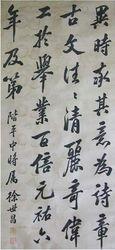 異時求其意為詩章
古文往往清麗奇偉
工於舉業百倍元祐六
年及第
階平中時属 徐世昌